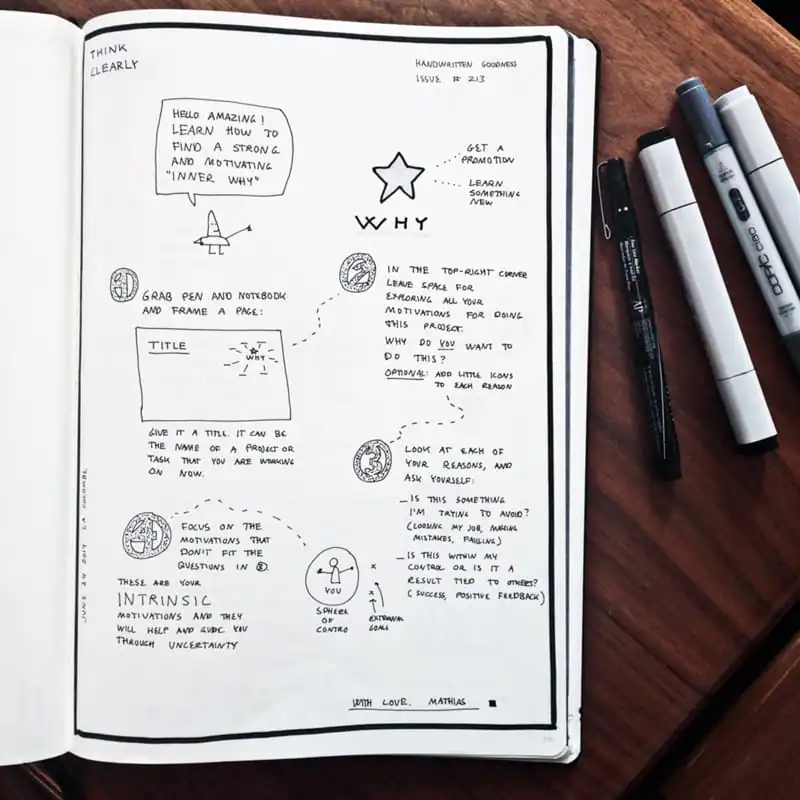 THINK
CLEARLY
HANDWRITTEN GOODNESS
ISSUE # 213
HELLO AMAZING!
LEARN HOW TO
FIND A STRONG
AND MOTIVATING
"INNER WHY"
GET A
PROMOTION
LEARN
SOMETHING
NEW
WHY
1
GRAB PEN AND NOTEBOOK
AND FRAME A PAGE:
TITLE
WHY
GIVE IT A TITLE. IT CAN BE
THE NAME OF A PROJECT OR
TASK THAT YOU ARE WORKING
ON NOW.
2
IN THE TOP-RIGHT CORNER
LEAVE SPACE FOR
EXPLORING ALL YOUR
MOTIVATIONS FOR DOING
THIS PROJECT.
WHY DO YOU WANT TO
DO THIS?
OPTIONAL: ADD LITTLE ICONS
TO EACH REASON
3
LOOK AT EACH OF
YOUR REASONS, AND
ASK YOURSELF:
– IS THIS SOMETHING
I'M TRYING TO AVOID?
(LOOSING MY JOB, MAKING
MISTAKES, FAILLING)
– IS THIS WITHIN MY
CONTROL OR IS IT A
RESULT TIED TO OTHERS?
(SUCCESS, POSITIVE FEEDBACK)
4
FOCUS ON THE
MOTIVATIONS THAT
DON'T FIT THE
QUESTIONS IN 3.
THESE ARE YOUR
INTRINSIC
MOTIVATIONS AND THEY
WILL HELP AND GUIDE YOU
THROUGH UNCERTAINTY
YOU
SPHERE
OF
CONTRO
x
x
EXTERNAL
GOALS
WITH LOVE, MATHIAS
JUNE 24 2019 LA COLOMBE
COPIC CIAO